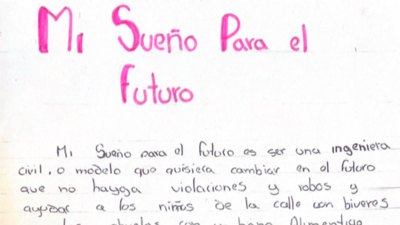 Mi Sueño Para el
Futuro
Mi Sueño para el futuro es ser una ingeniera
civil, o modelo que quisiera cambiar en el futuro
que no hayoga violaciones y robos y
ayudar a los niños de la calle con biveres
con bono Alimentiga